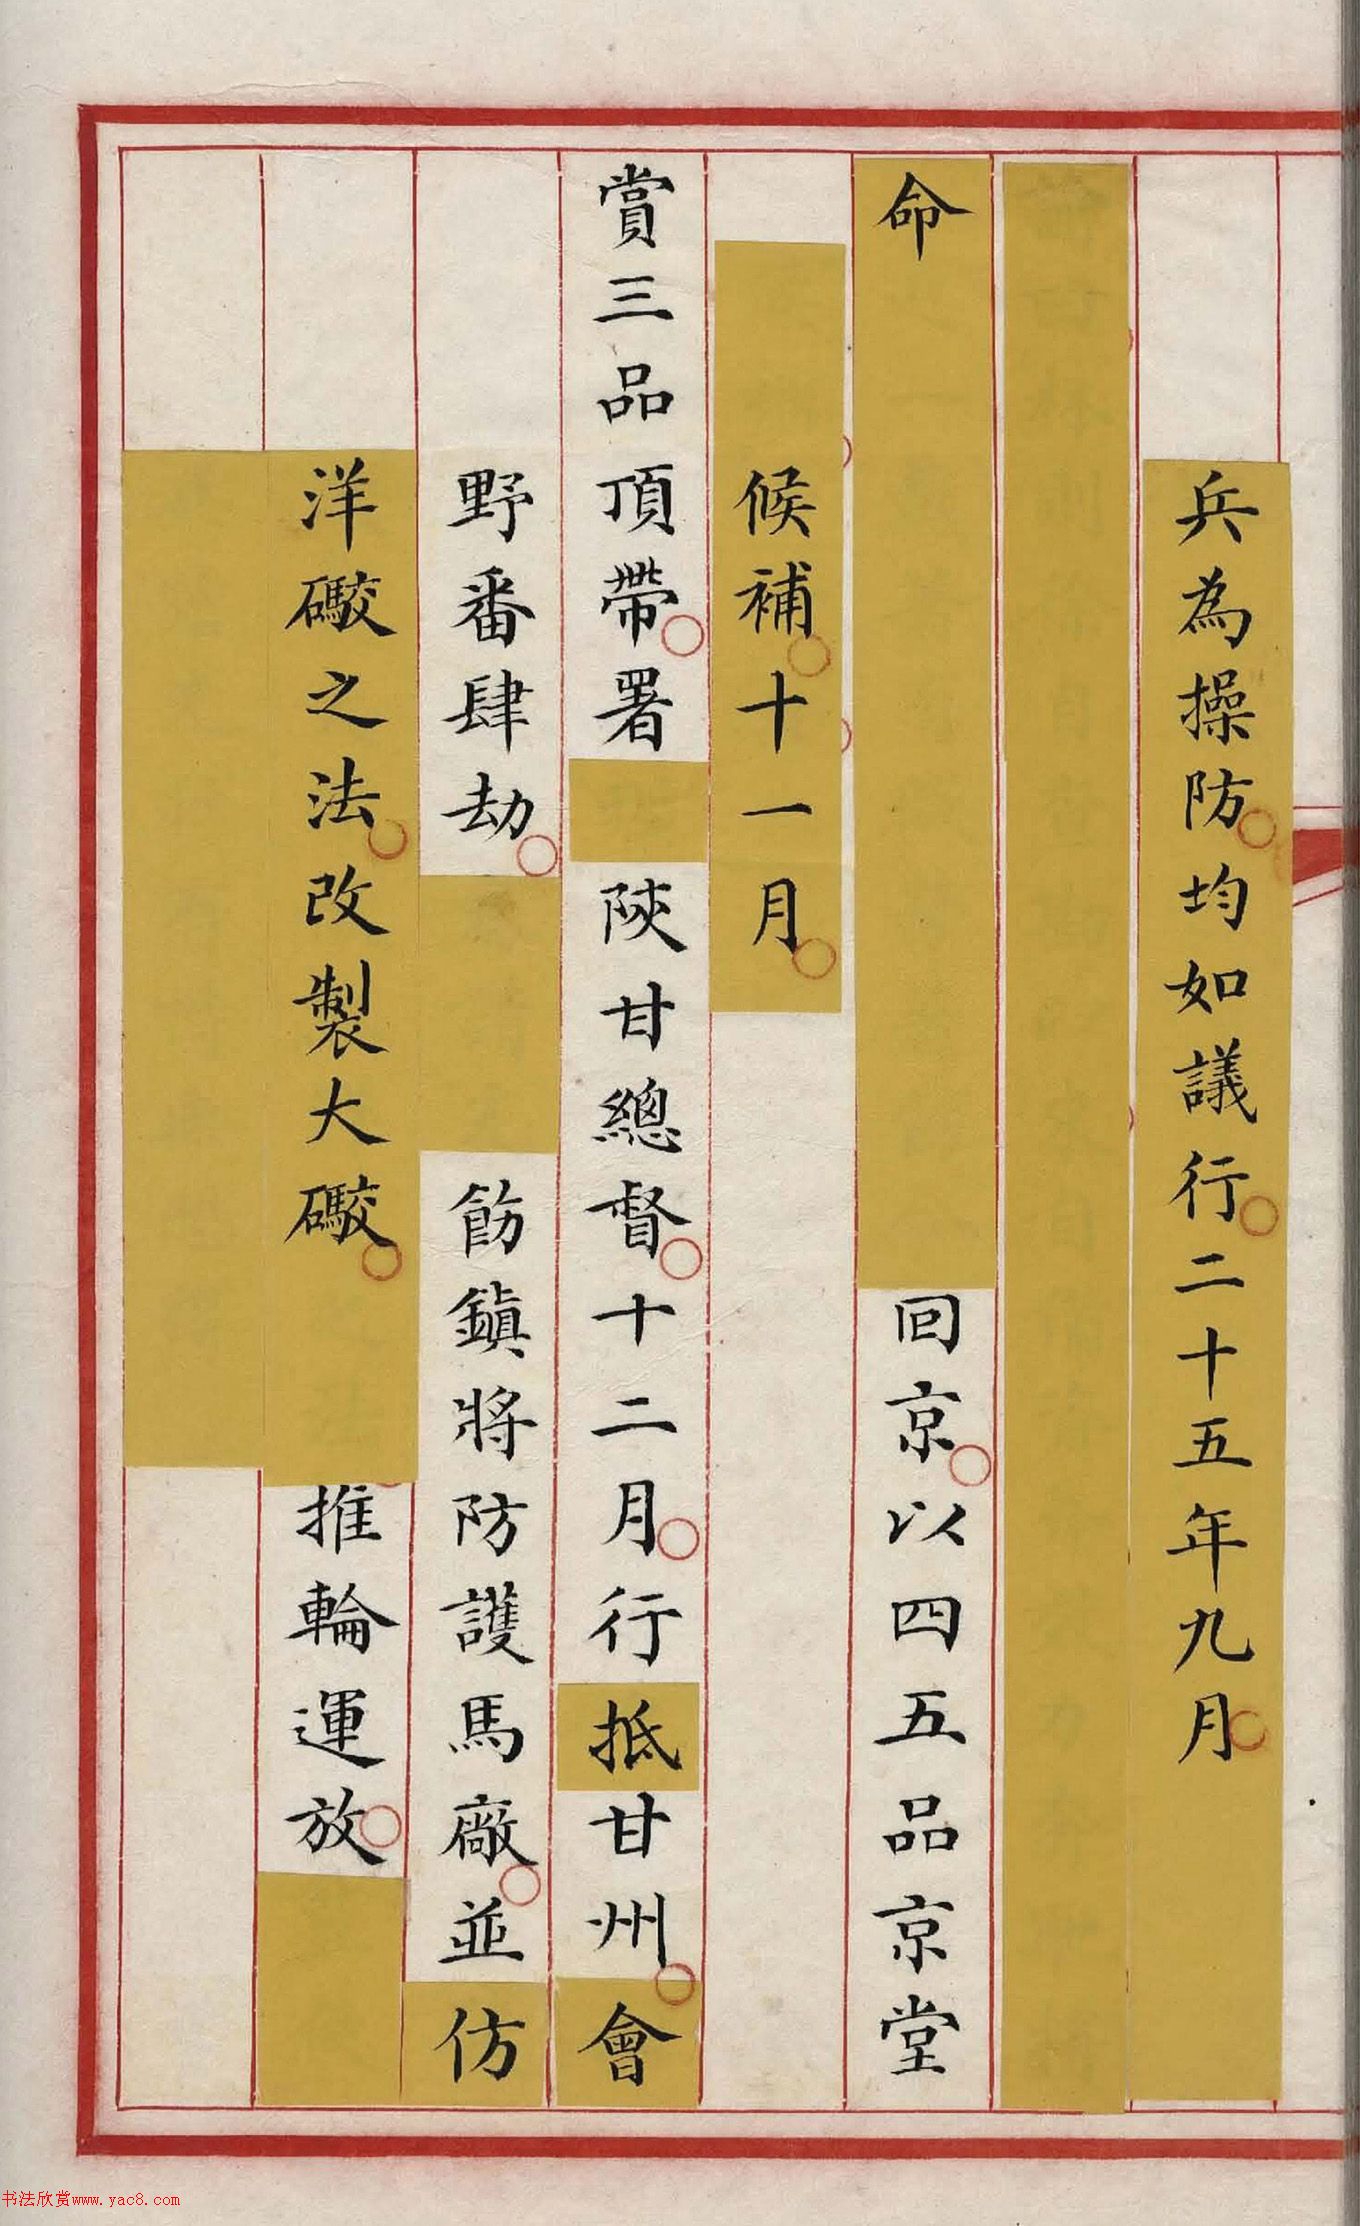 兵為操防均如議行二十五年九月
命回京以四五品京堂
候補十一月
賞三品頂帶署陝甘總督十二月行抵甘州會
野番肆劫飭鎮將防護馬廠並仿
洋礮之法改製大礮推輪運放
书法欣赏www.yac8.com